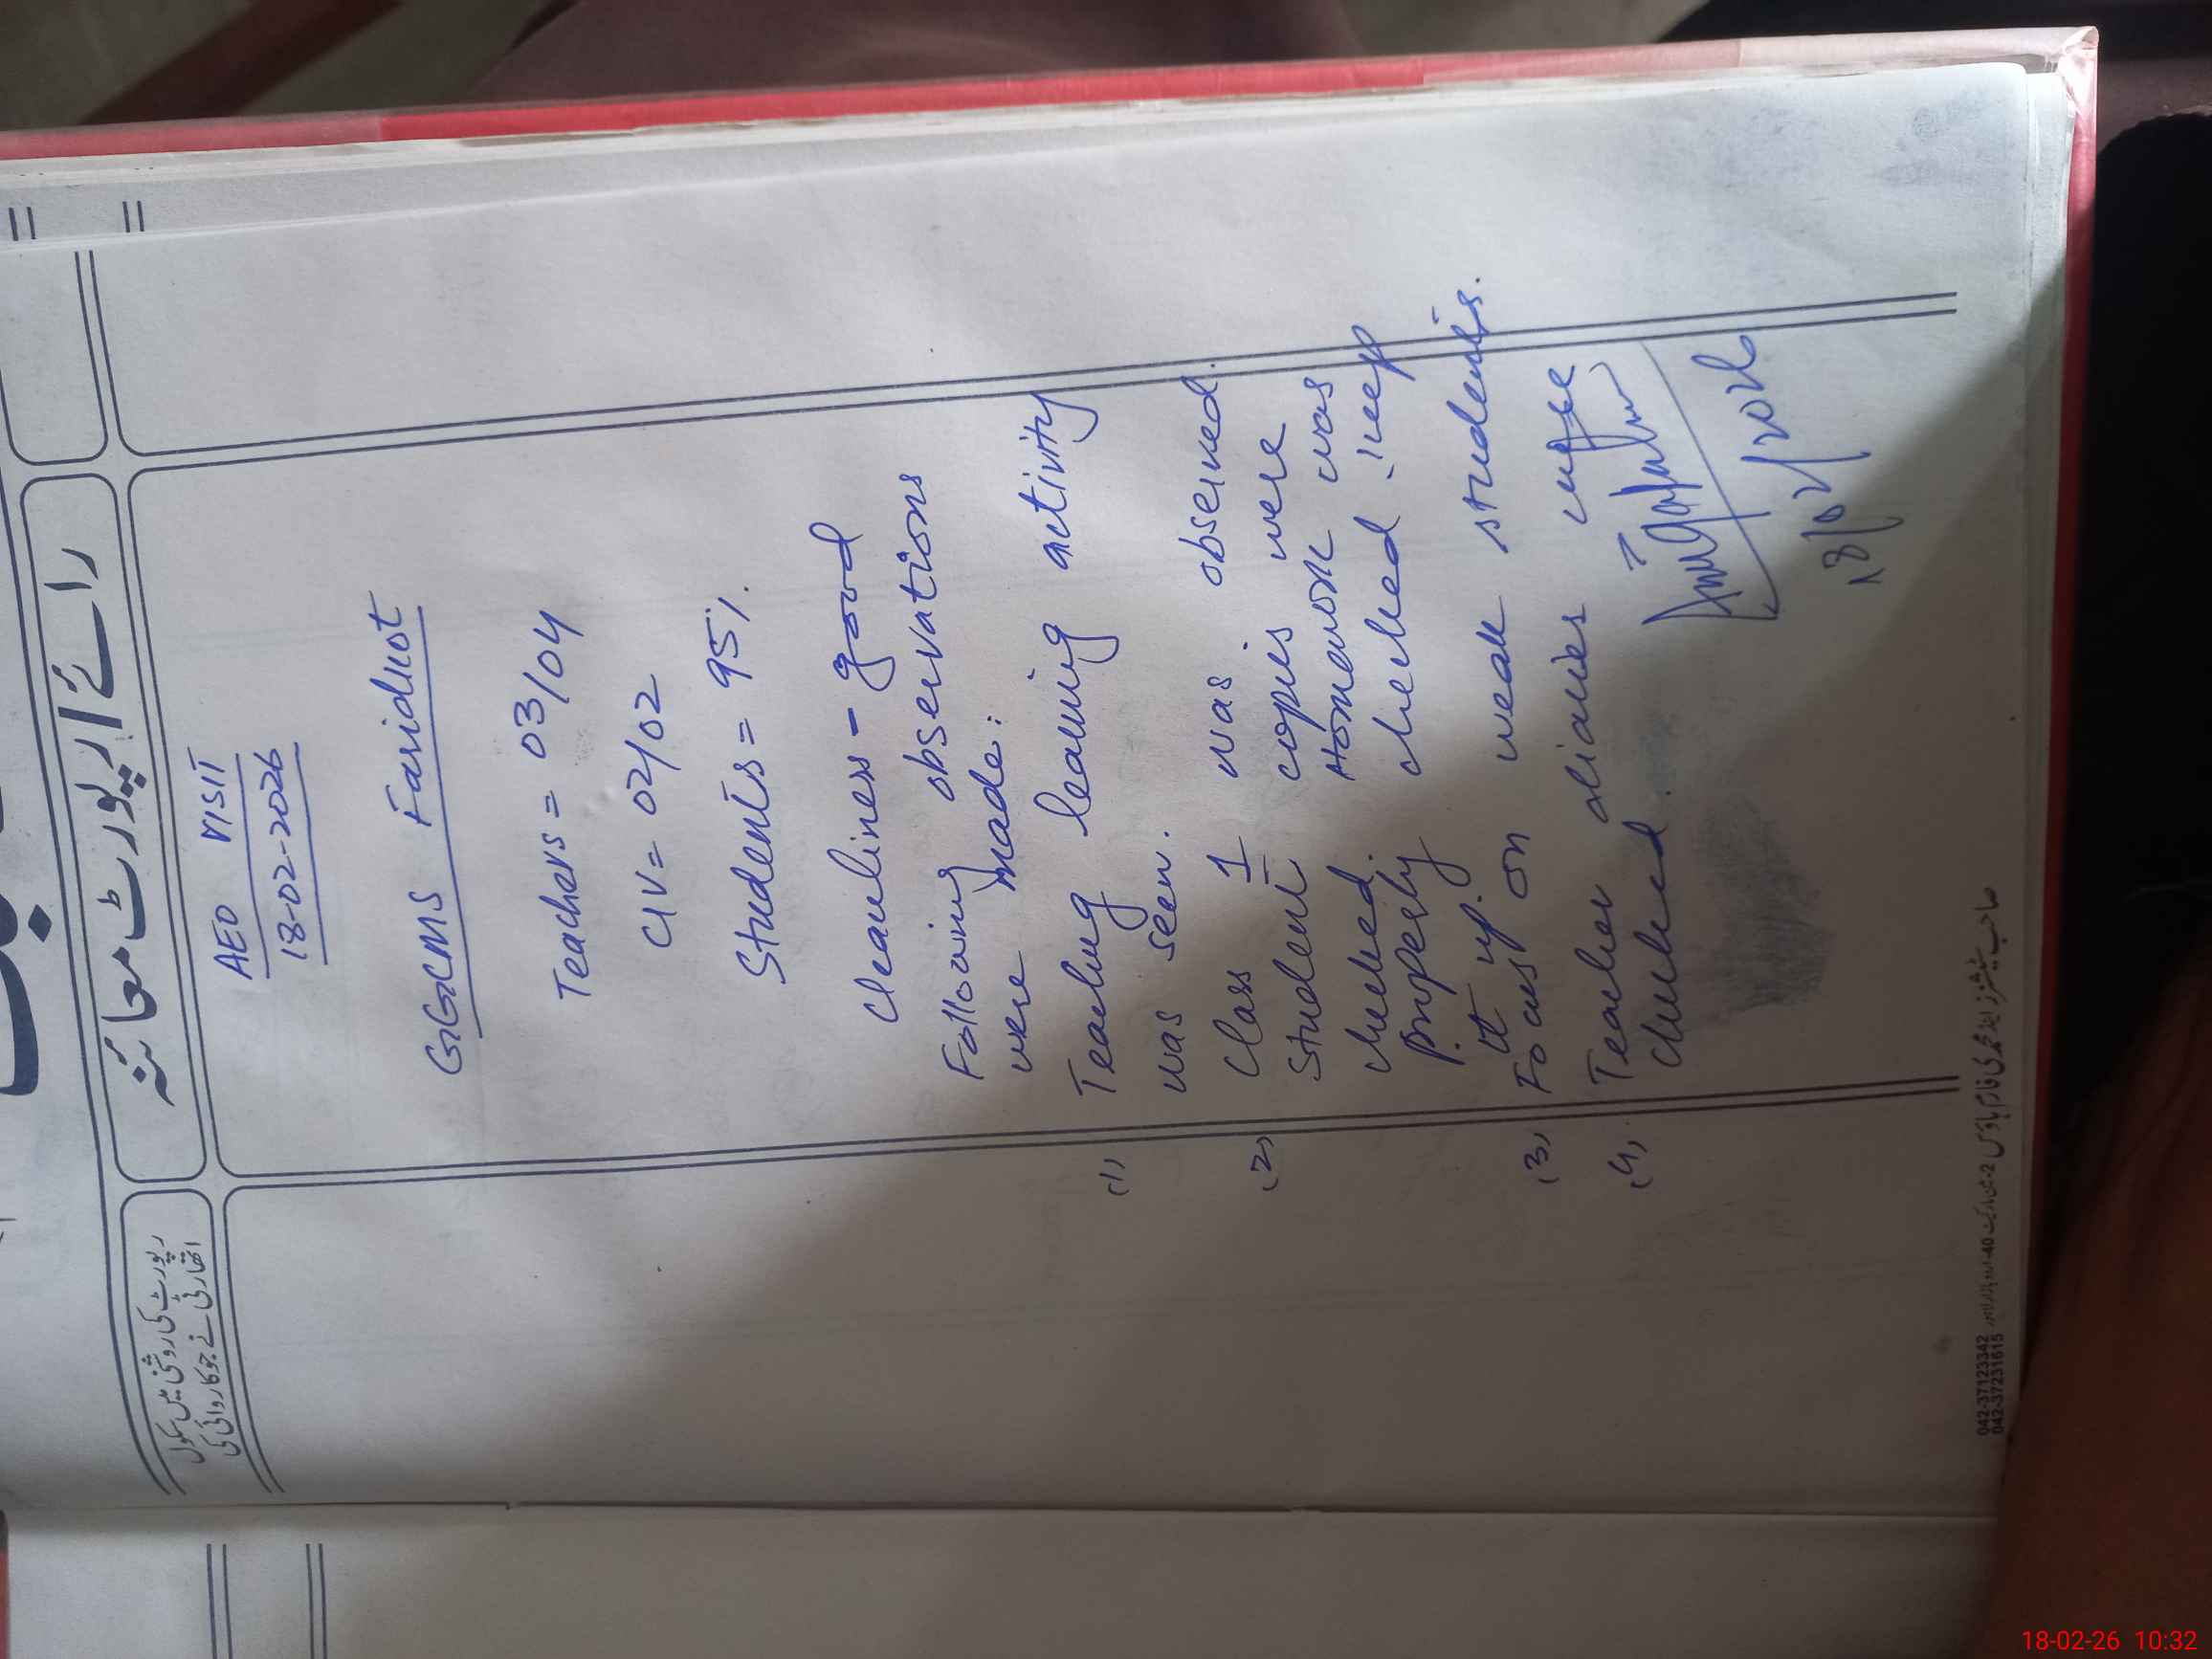 رائے / رپورٹ معائنہ
رپورٹ کی روشنی میں سکول
اتھارٹی نے جو کاروائی کی
AEO VISIT
18-02-2026
GGCMS Faridkot
Teachers = 03/04
CIV = 02/02
Students = 95%.
Cleanliness - good
Following observations
were made:
(1) Teaching learning activity
was seen.
(2) Class 1 was observed.
Student copies were
checked. Homework was
properly checked. Keep
it up.
(3) Focus on weak students.
(4) Teacher diaries were
checked.
18/02/2026
042-37123342
042-37231615
18-02-26 10:32